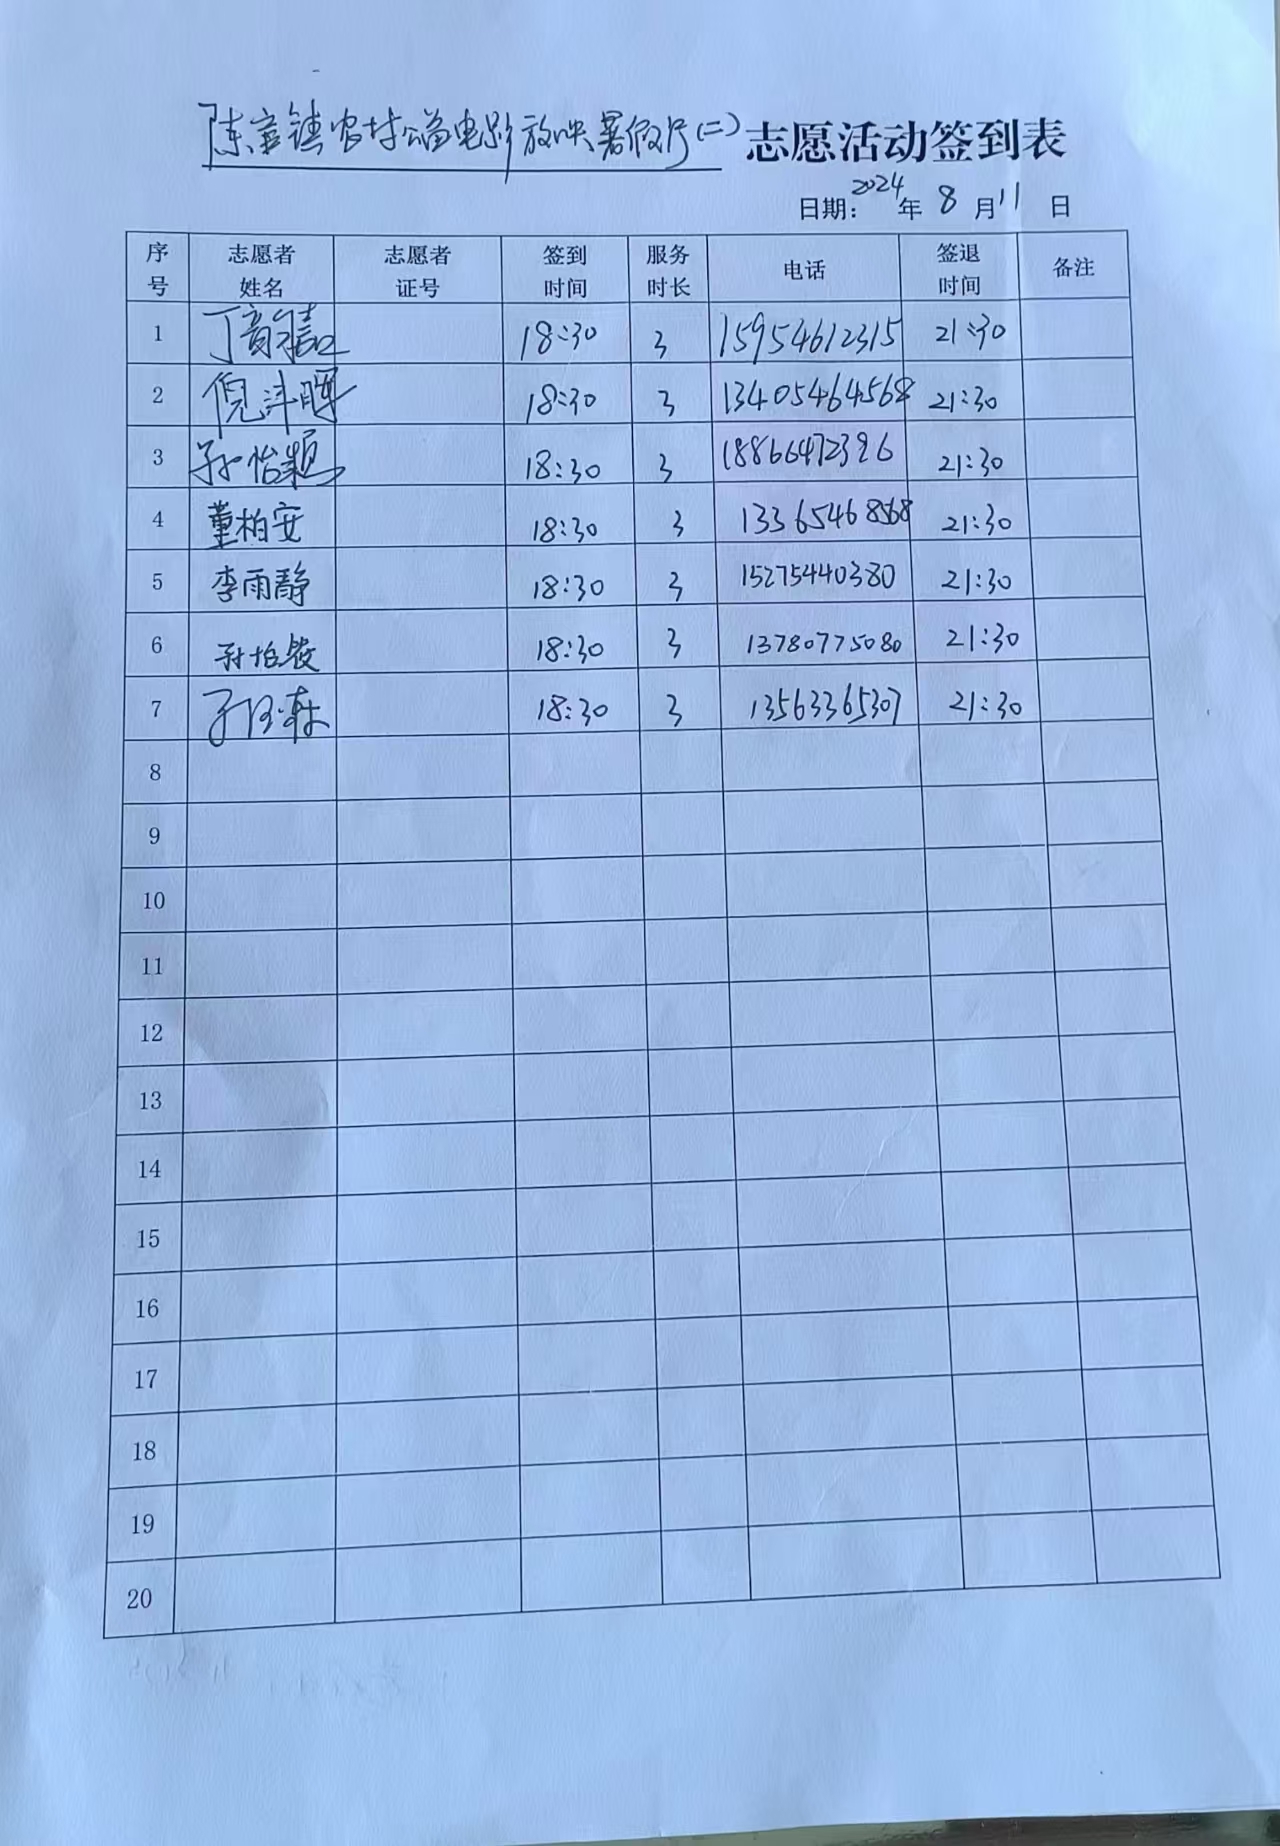 陈官镇农村公益电影放映暑假片(二) 志愿活动签到表
日期: 2024 年 8 月 11 日
序号 志愿者姓名 志愿者证号 签到时间 服务时长 电话 签退时间 备注
1 18:30 3 15954612315 21:30
2 18:30 3 13405464568 21:30
3 孙怡颖 18:30 3 18866472326 21:30
4 董柏安 18:30 3 13365468568 21:30
5 李雨静 18:30 3 15275440380 21:30
6 18:30 3 13780775080 21:30
7 18:30 3 13563365307 21:30
8
9
10
11
12
13
14
15
16
17
18
19
20